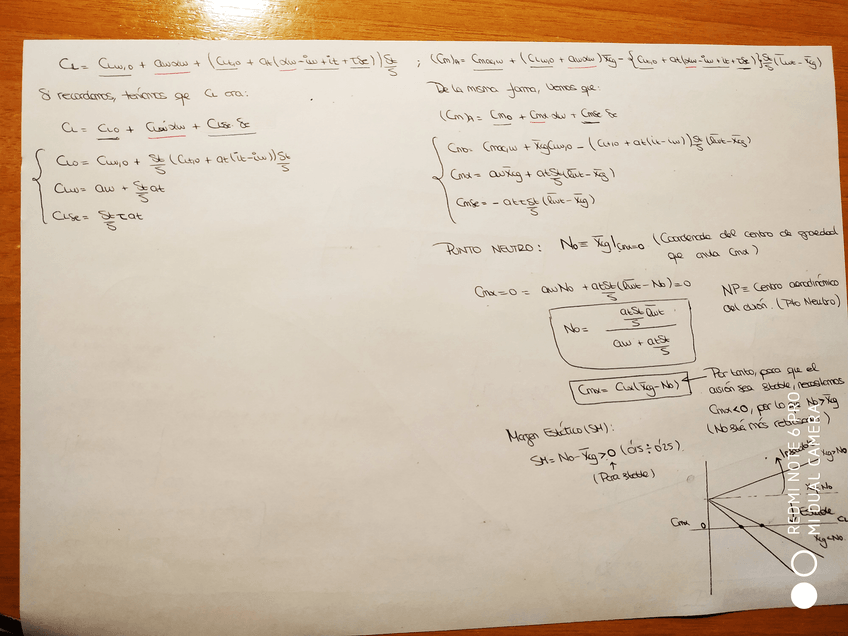 CL = CLw,0 + awαw + (CLt,0 + at(αw-iw+it+τδe))St/S ; (Cm)A = Cmac,w + (CLw,0 + awαw)x̄cg - {CLt,0 + at(αw-iw+it+τδe)}St/S(l̄wt - x̄cg)
Si recordamos, teníamos que CL era:
CL = CL0 + CLααw + CLδe δe
CL0 = CLw,0 + St/S (CLt,0 + at(it-iw))St/S
CLα = aw + St/S at
CLδe = St/S τ at
De la misma forma, vemos que:
(Cm)A = Cm0 + Cmα αw + Cmδe δe
Cm0 = Cmac,w + x̄cgCLw,0 - (CLt,0 + at(it-iw))St/S(l̄wt-x̄cg)
Cmα = awx̄cg + atSt/S(l̄wt-x̄cg)
Cmδe = -atτSt/S(l̄wt-x̄cg)
PUNTO NEUTRO: N0 ≡ x̄cg|Cmα=0 (Coordenada del centro de gravedad
que anula Cmα)
Cmα=0 = awN0 + atSt/S(l̄wt-N0)=0
NP ≡ Centro aerodinámico
del avión. (Pto Neutro)
N0 = (atSt/S l̄wt)/(aw + atSt/S)
Cmα = CLα(x̄cg-N0)
Por tanto, para que el
avión sea stable, necesitamos
Cmα<0, por lo que N0>x̄cg
(N0 está más
Margen Estático (SH):
SH = N0-x̄cg>0 (0'15÷0'25)
(Para stable)
x̄cg>N0
x̄cg=N0
Estable
Cmα 0
CL
x̄cg<N0
REDMI NOTE 6 PRO
MI DUAL CAMERA